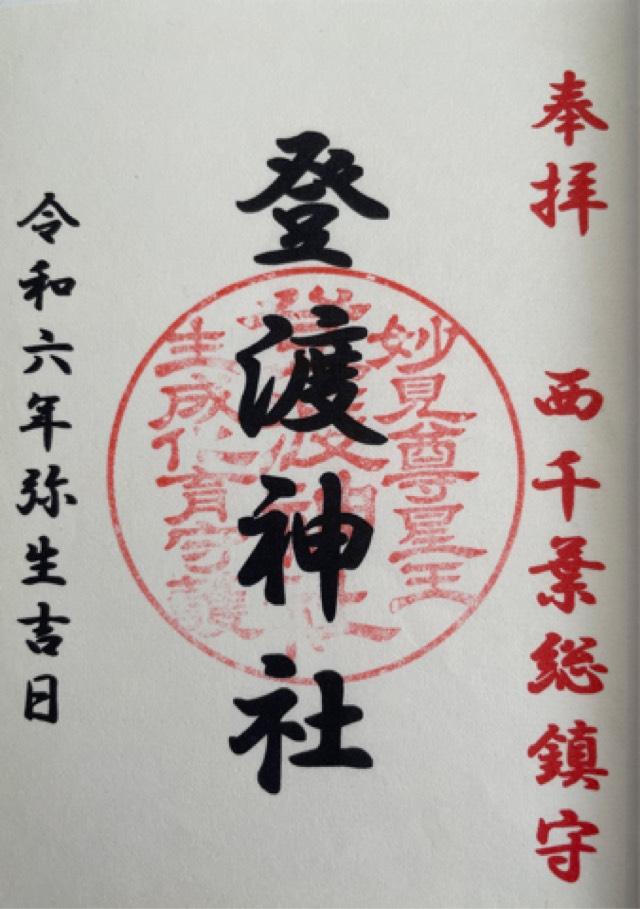 奉拝 西千葉総鎮守
登渡神社
妙見尊星王
登渡神社
生成化育守護
令和六年弥生吉日